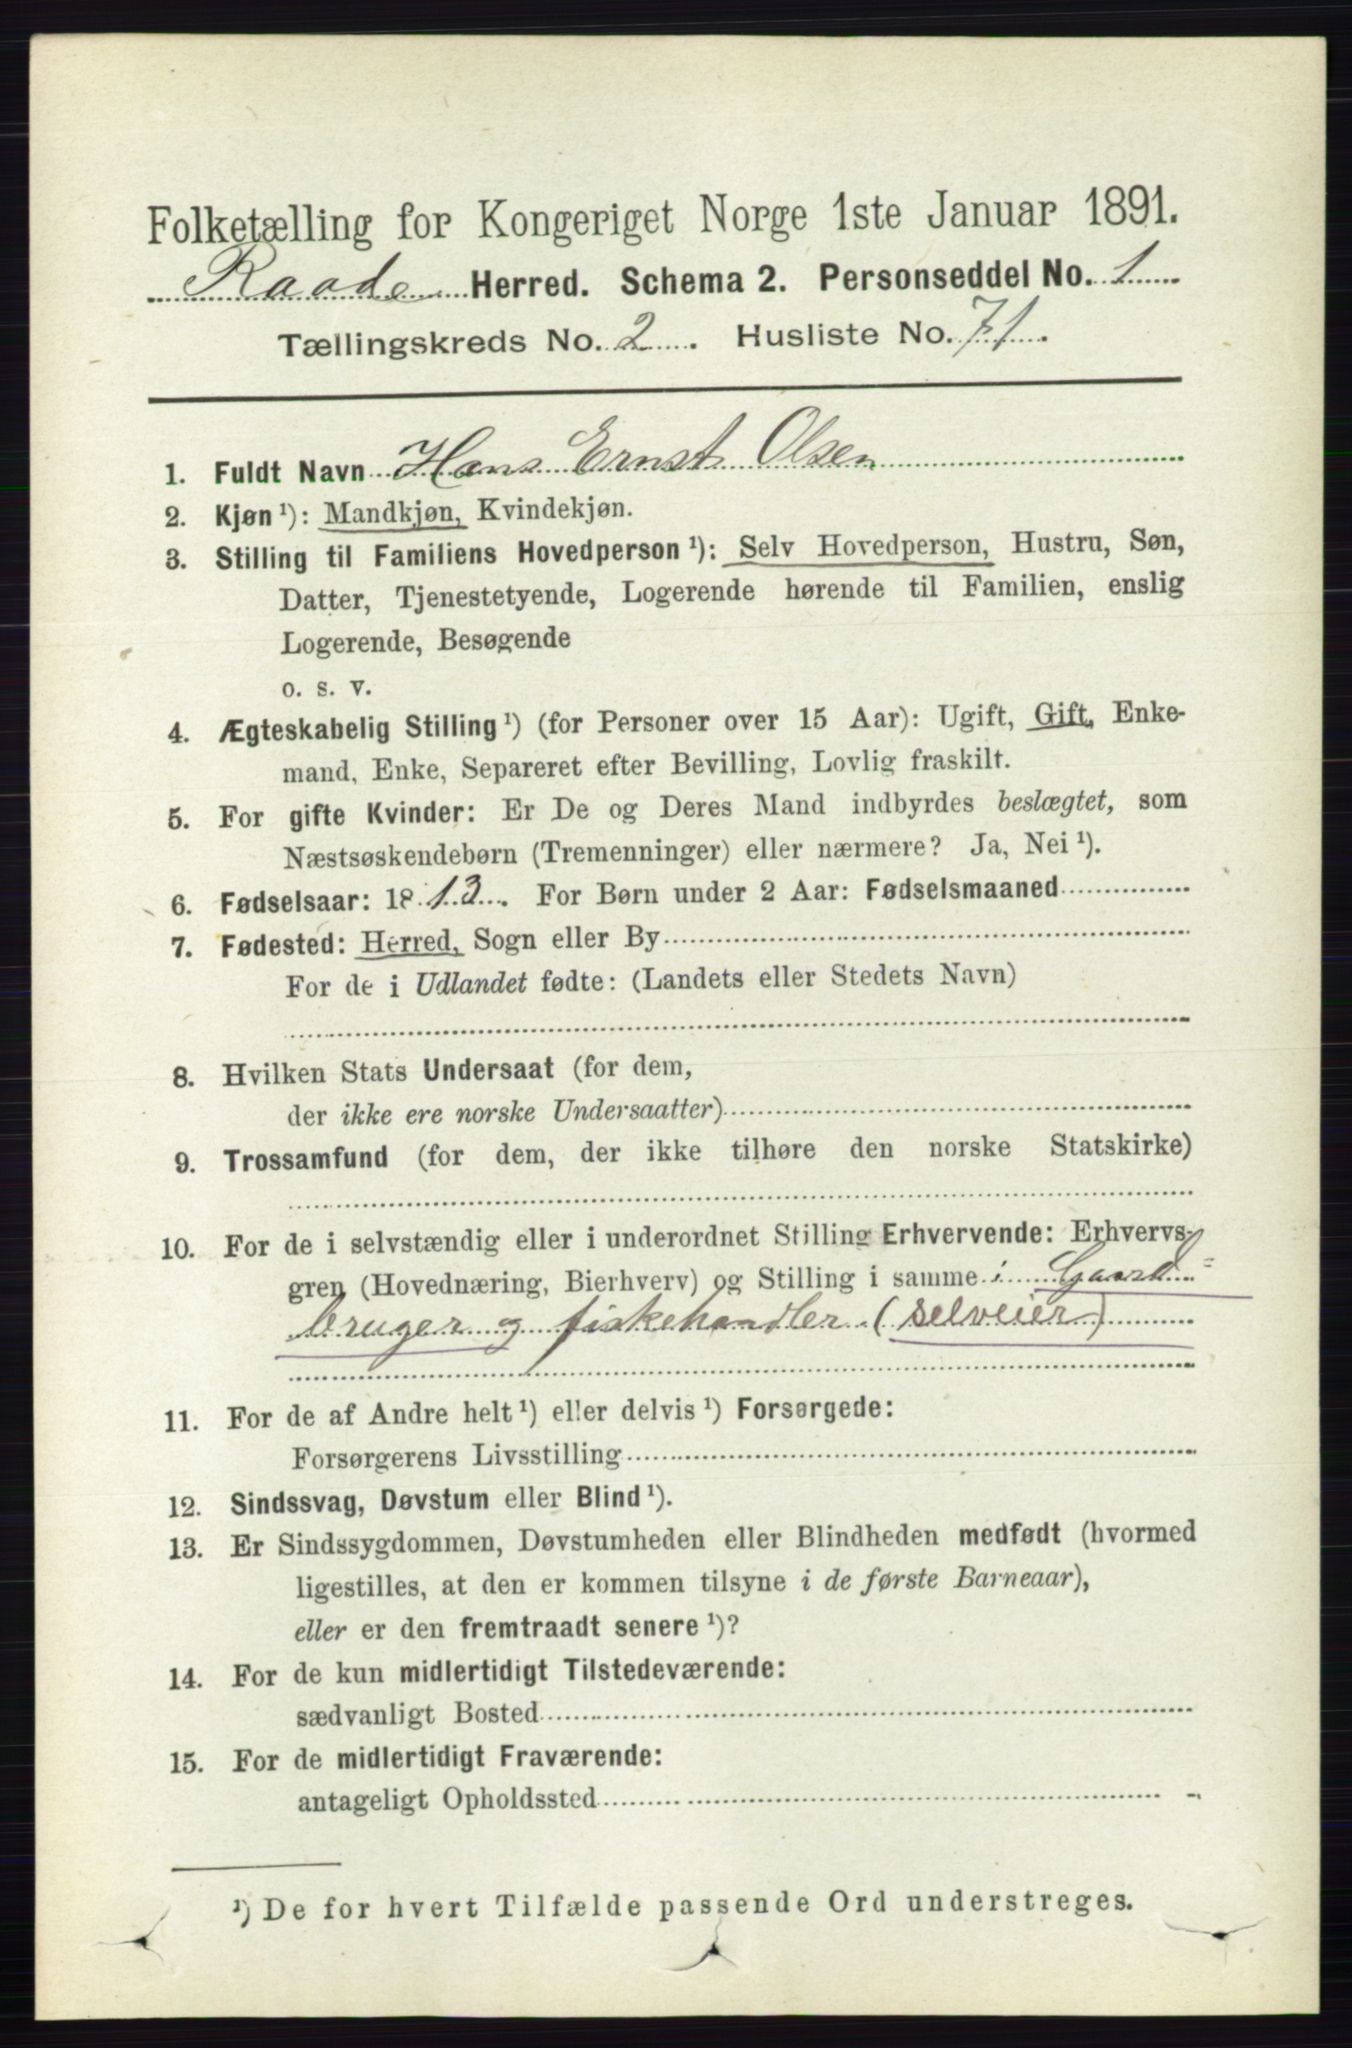 Folketælling for Kongeriget Norge 1ste Januar 1891.
Raade Herred. Schema 2. Personseddel No. 1
Tællingskreds No. 2. Husliste No. 71.
1. Fuldt Navn Hans Ernst Olsen
2. Kjøn ¹): Mandkjøn, Kvindekjøn.
3. Stilling til Familiens Hovedperson ¹): Selv Hovedperson, Hustru, Søn,
Datter, Tjenestetyende, Logerende hørende til Familien, enslig
Logerende, Besøgende
o. s. v.
4. Ægteskabelig Stilling ¹) (for Personer over 15 Aar): Ugift, Gift, Enke-
mand, Enke, Separeret efter Bevilling, Lovlig fraskilt.
5. For gifte Kvinder: Er De og Deres Mand indbyrdes beslægtet, som
Næstsøskendebørn (Tremenninger) eller nærmere? Ja, Nei ¹).
6. Fødselsaar: 1813. For Børn under 2 Aar: Fødselsmaaned
7. Fødested: Herred, Sogn eller By
For de i Udlandet fødte: (Landets eller Stedets Navn)
8. Hvilken Stats Undersaat (for dem,
der ikke ere norske Undersaatter)
9. Trossamfund (for dem, der ikke tilhøre den norske Statskirke)
10. For de i selvstændig eller i underordnet Stilling Erhvervende: Erhvervs-
gren (Hovednæring, Bierhverv) og Stilling i samme i Gaard=
bruger og fiskehandler (selveier)
11. For de af Andre helt ¹) eller delvis ¹) Forsørgede:
Forsørgerens Livsstilling
12. Sindssvag, Døvstum eller Blind ¹).
13. Er Sindssygdommen, Døvstumheden eller Blindheden medfødt (hvormed
ligestilles, at den er kommen tilsyne i de første Barneaar),
eller er den fremtraadt senere ¹)?
14. For de kun midlertidigt Tilstedeværende:
sædvanligt Bosted
15. For de midlertidigt Fraværende:
antageligt Opholdssted
¹) De for hvert Tilfælde passende Ord understreges.